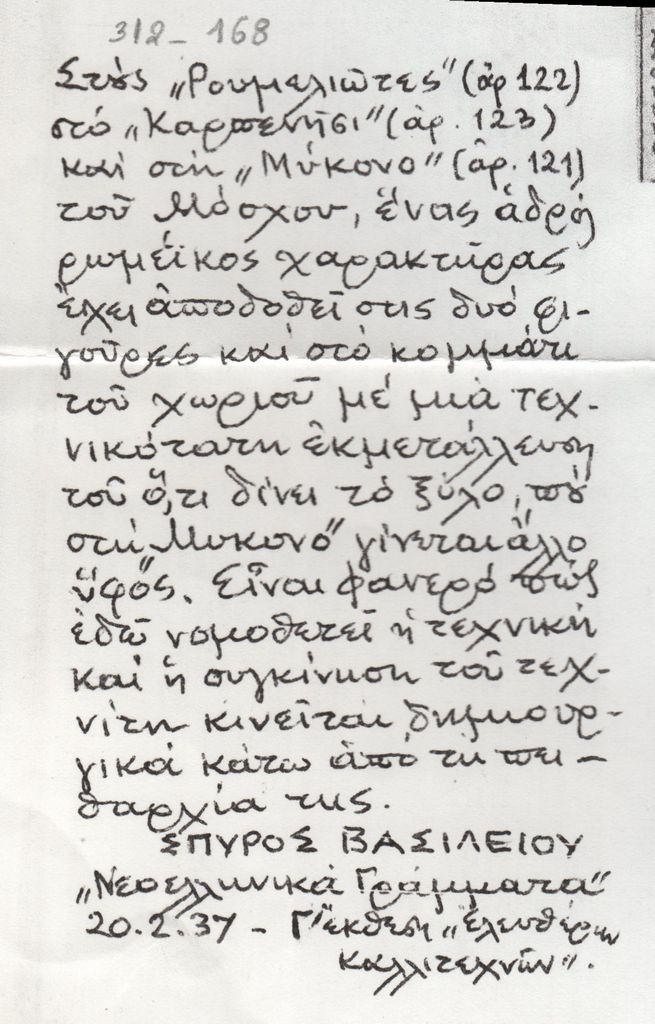 312 - 168
Στούς „Ρουμελιῶτες" (ἀρ 122)
στό „Καρπενῆσι" (ἀρ. 123)
καί στή „Μύκονο" (ἀρ. 121)
τοῦ Μόσχου, ἕνας ἁδρός
ρωμέϊκος χαρακτήρας
ἔχει ἀποδοθεῖ στις δυό φι-
γοῦρες καί στό κομμάτι
τοῦ χωριοῦ μέ μιά τεχ-
νικότατη ἐκμετάλλευση
τοῦ ὅ,τι δίνει τό ξύλο, πού
στή „Μυκονο" γίνεται ἄλλο
ὕφος. Εἶναι φανερό πώς
ἐδῶ νομοθετεῖ ἡ τεχνική
καί ἡ συγκίνηση τοῦ τεχ-
νίτη κινεῖται δημιουρ-
γικά κάτω ἀπό τη πει-
θαρχία της.
ΣΠΥΡΟΣ ΒΑΣΙΛΕΙΟΥ
„Νεοελληνικά Γράμματα"
20.2.37 - Γ' ἔκθεση „ἐλευθέρων
καλλιτεχνῶν".